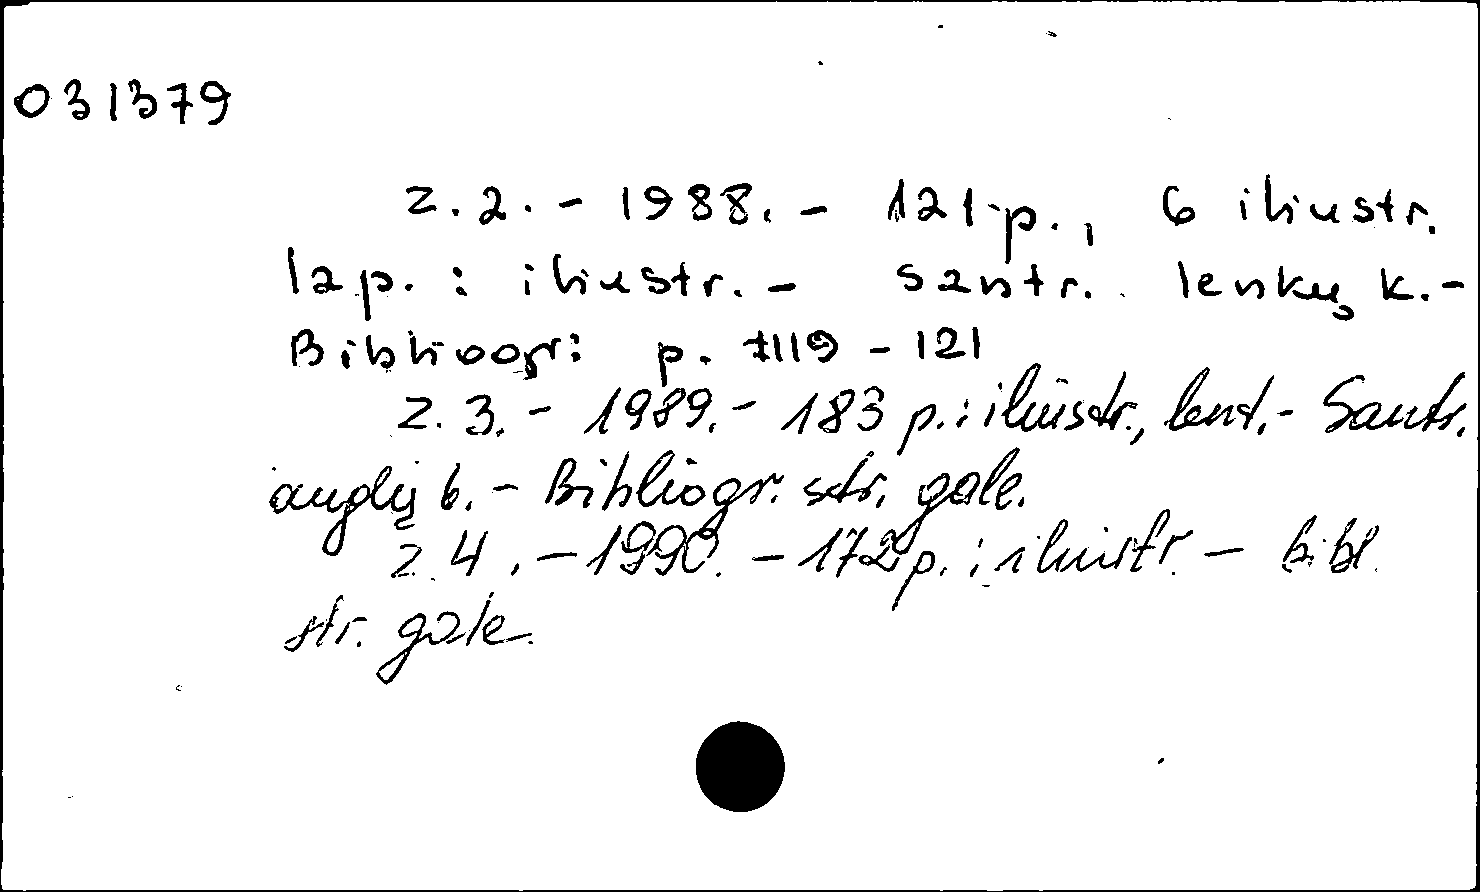 031379
z. 2. - 1988. - 121 p., 6 iliustr.
lap. : iliustr. - Santr. lenkų k. -
Bibliogr: p. 119 - 121
z. 3. - 1989. - 183 p. : iliustr., lent. - Santr.
anglų k. - Bibliogr. str. gale.
z. 4. - 1990. - 172 p. : iliustr. - bibl.
str. gale.